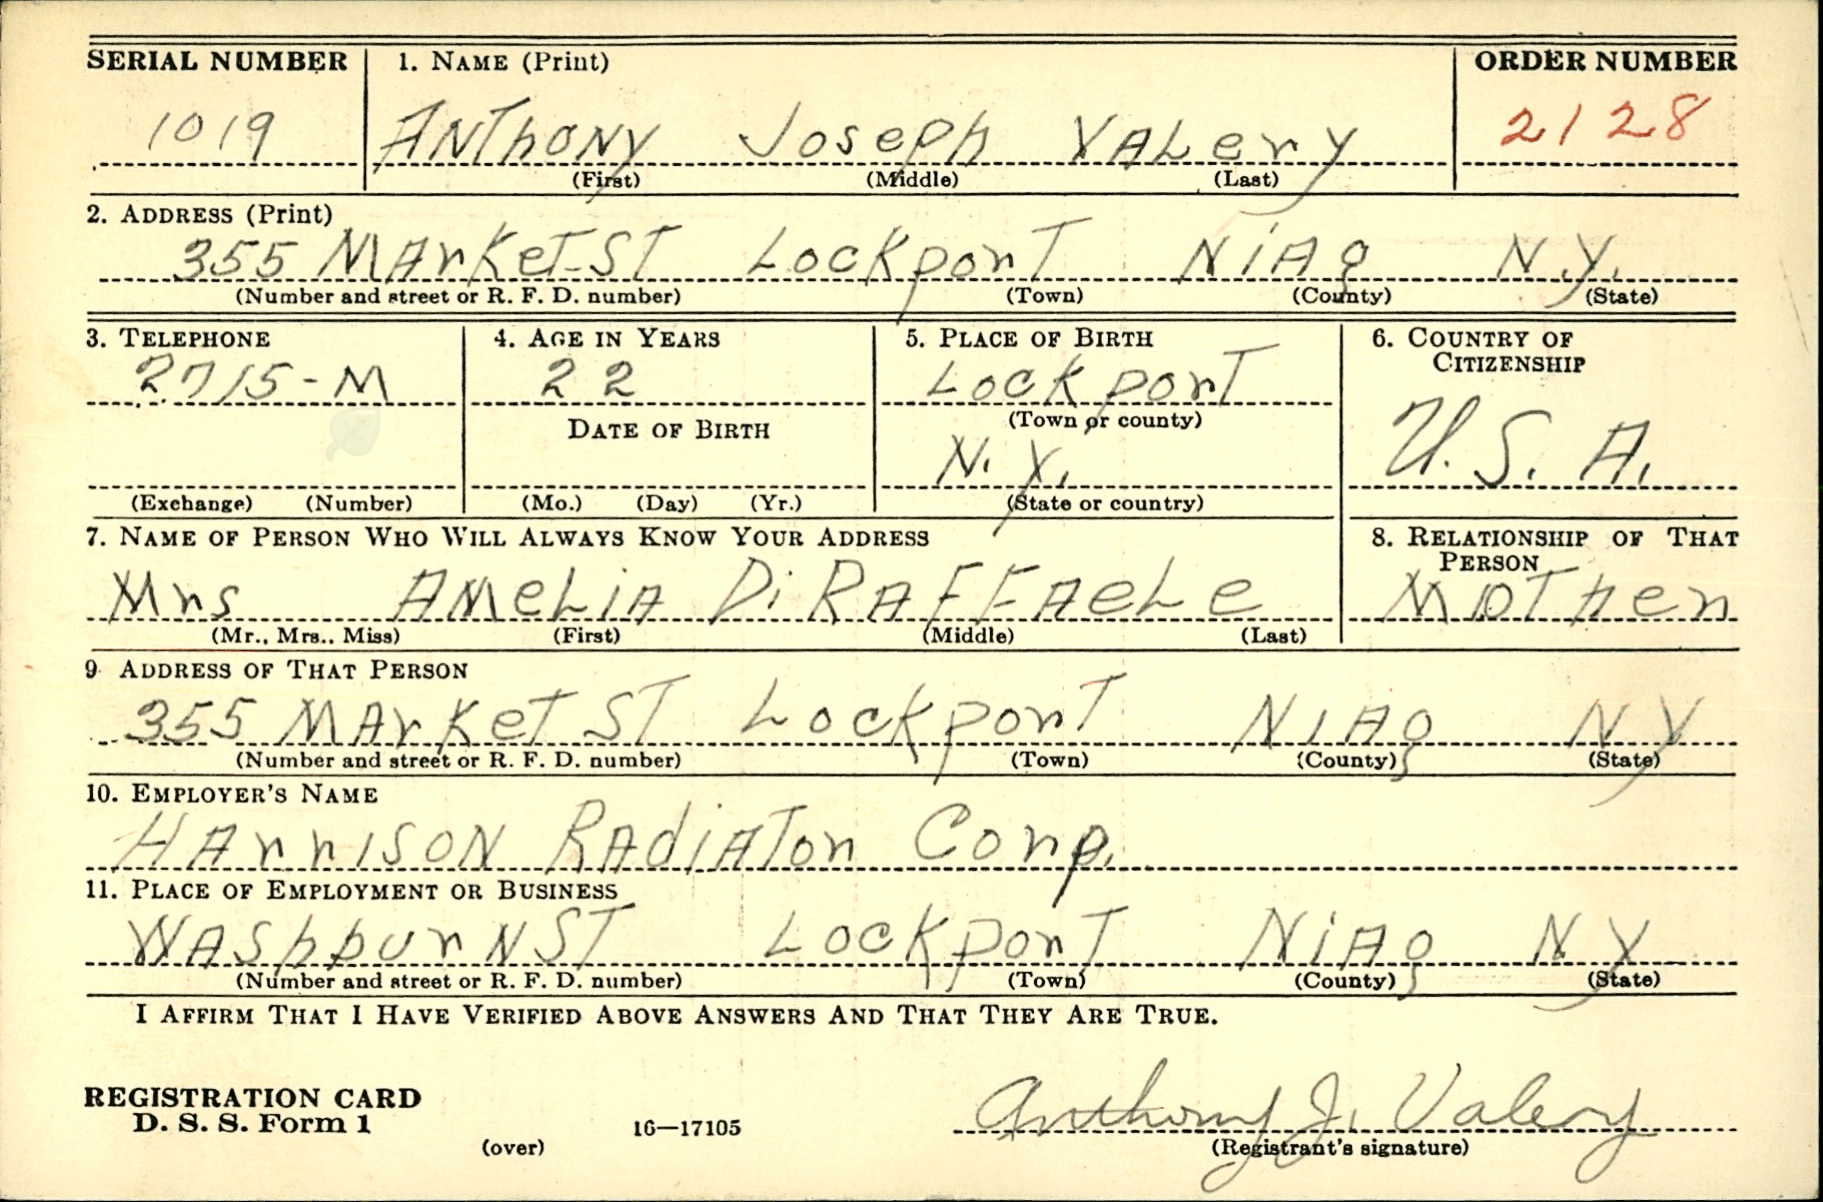 SERIAL NUMBER 1. NAME (Print) ORDER NUMBER
1019 ANThONY Joseph VALery 2128
(First) (Middle) (Last)
2. ADDRESS (Print)
355 MArKeT ST LockporT NiAg N.y.
(Number and street or R. F. D. number) (Town) (County) (State)
3. TELEPHONE 4. AGE IN YEARS 5. PLACE OF BIRTH 6. COUNTRY OF CITIZENSHIP
2715-M 22 LockporT
DATE OF BIRTH (Town or county) U.S.A.
N.Y.
(Exchange) (Number) (Mo.) (Day) (Yr.) (State or country)
7. NAME OF PERSON WHO WILL ALWAYS KNOW YOUR ADDRESS 8. RELATIONSHIP OF THAT PERSON
Mrs AMeLiA Di RAFFAeLe MoTher
(Mr., Mrs., Miss) (First) (Middle) (Last)
9 ADDRESS OF THAT PERSON
355 MArKeT ST LockporT NiAg NY
(Number and street or R. F. D. number) (Town) (County) (State)
10. EMPLOYER'S NAME
HArrISON RAdiATor Corp.
11. PLACE OF EMPLOYMENT OR BUSINESS
WAShburN ST LockporT NiAg NY
(Number and street or R. F. D. number) (Town) (County) (State)
I AFFIRM THAT I HAVE VERIFIED ABOVE ANSWERS AND THAT THEY ARE TRUE.
REGISTRATION CARD
D. S. S. Form 1 (over) 16—17105 Anthony J. Valery
(Registrant's signature)